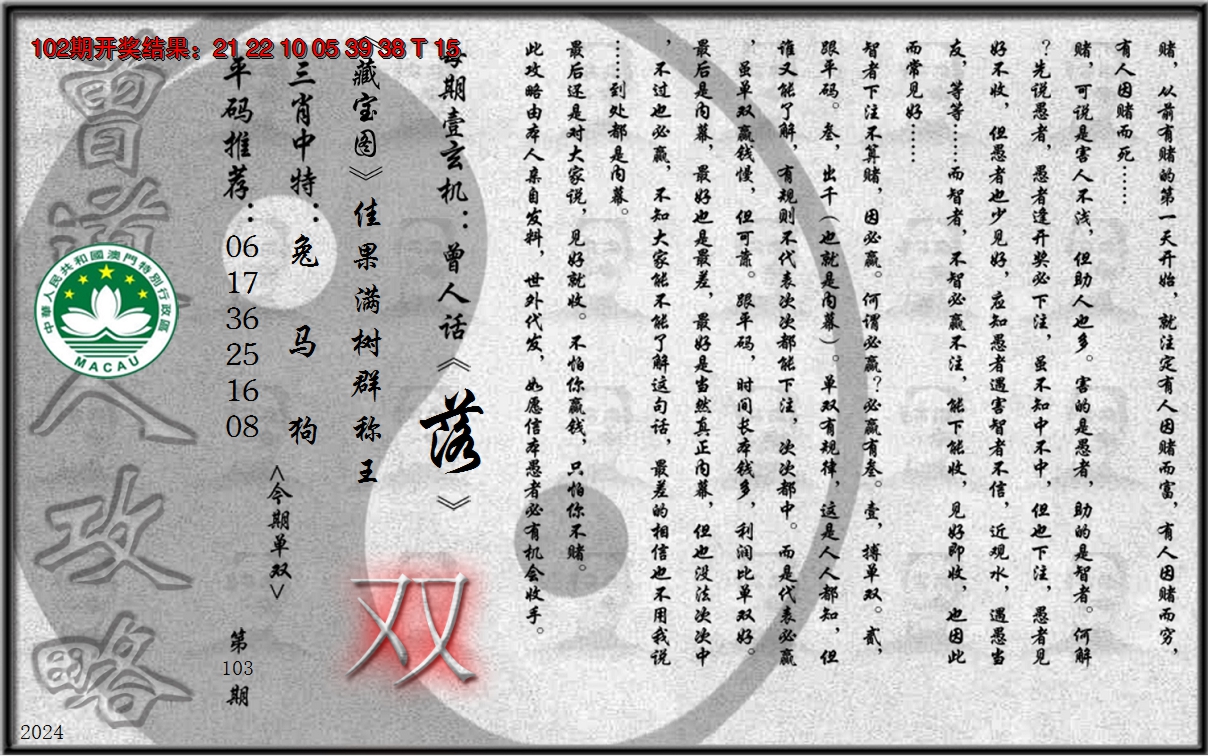 102期开奖结果：21 22 10 05 39 38 T 15
赌，从前有赌的第一天开始，就注定有人因赌而富，有人因赌而穷，
有人因赌而死……
赌，可说是害人不浅，但助人也多。害的是愚者，助的是智者。何解
？先说愚者，愚者逢开奖必下注，虽不知中不中，但也下注，愚者见
好不收，但愚者也少见好，应知愚者遇害智者不信，近观水，遇愚当
友，等等……而智者，不智必赢不注，能下能收，见好即收，也因此
而常见好……
智者下注不算赌，因必赢。何谓必赢？必赢有叁。壹，搏单双。贰，
跟平码。叁，出千（也就是内幕）。单双有规律，这是人人都知，但
谁又能了解，有规则不代表次次都能下注，次次都中。而是代表必赢
，虽单双赢钱慢，但可靠。跟平码，时间长本钱多，利润比单双好。
最后是内幕，最好也是最差，最好是当然真正内幕，但也没法次次中
，不过也必赢，不知大家能不能了解这句话，最差的相信也不用我说
……到处都是内幕。
最后还是对大家说，见好就收。不怕你赢钱，只怕你不赌。
此攻略由本人亲自发料，世外代发，如愿信本愚者必有机会收手。
每期壹玄机：曾人话《落》
《藏宝图》佳果满树群称王
双
三肖中特：兔 马 狗
<今期单双>
平码推荐：
06
17
36
25
16
08
第
103
期
曾道人攻略
中華人民共和國澳門特別行政區
MACAU
2024